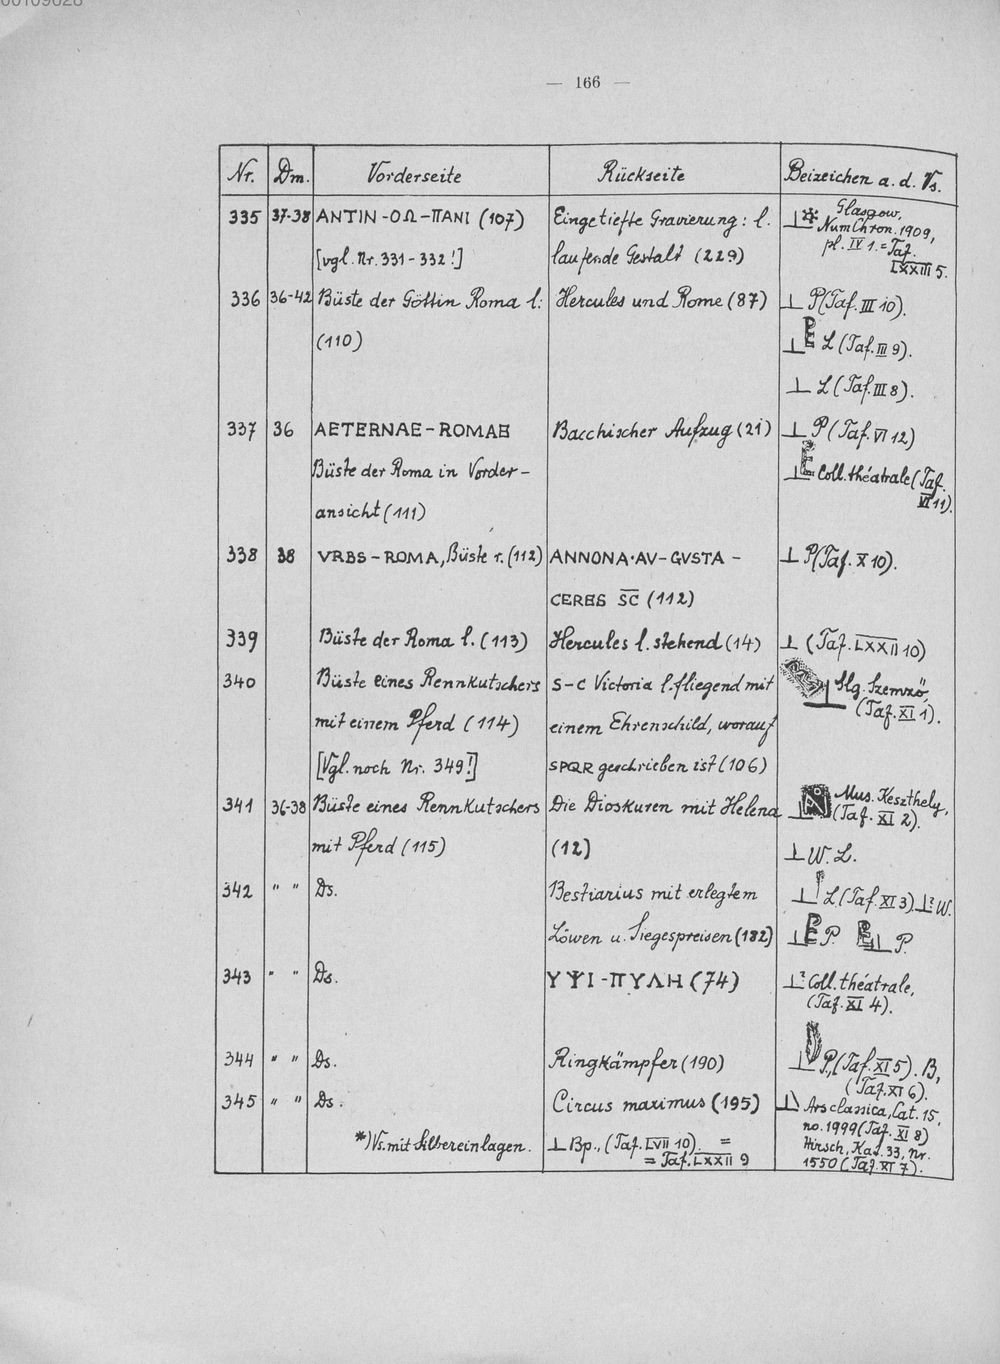 — 166 —
Nr. Dm. Vorderseite Rückseite Beizeichen a. d. Vs.
335 37-38 ANTIN-OΩ-ΠANI (107) Eingetiefte Gravierung: l. ⊥ Glasgow,
Num Chron. 1909,
[vgl. Nr. 331-332!] laufende Gestalt (229) pl. IV 1. = Taf.
LXXIII 5.
336 36-42 Büste der Göttin Roma l: Hercules und Rome (87) ⊥ P (Taf. III 10).
(110) ⊥ L (Taf. III 9).
⊥ L (Taf. III 8).
337 36 AETERNAE-ROMAE Bacchischer Aufzug (21) ⊥ P (Taf. VI 12)
Büste der Roma in Vorder- ⊥ Coll. théatrale (Taf.
VI 11).
ansicht (111)
338 38 VRBS-ROMA, Büste r. (112) ANNONA·AV-GVSTA- ⊥ P (Taf. X 10).
CERES SC (112)
339 Büste der Roma l. (113) Hercules l. stehend (14) ⊥ (Taf. LXXII 10)
340 Büste eines Rennkutschers S-C Victoria l. fliegend mit Slg. Szemző,
(Taf. XI 1).
mit einem Pferd (114) einem Ehrenschild, worauf
[Vgl. noch Nr. 349!] SPQR geschrieben ist (106)
341 36-38 Büste eines Rennkutschers Die Dioskuren mit Helena Mus. Keszthely,
(Taf. XI 2).
mit Pferd (115) (12) ⊥ W. L.
342 " " Ds. Bestiarius mit erlegtem ⊥ L. (Taf. XI 3) ⊥? W.
Löwen u. Siegespreisen (182) ⊥ P. ⊥ P.
343 " " Ds. ΥΨΙ-ΠΥΛΗ (74) ⊥? Coll. théatrale,
(Taf. XI 4).
344 " " Ds. Ringkämpfer (190) ⊥ P., (Taf. XI 5). B,
(Taf. XI 6).
345 " " Ds. Circus maximus (195) ⊥ Ars classica, Cat. 15,
no. 1999 (Taf. XI 8)
*) Vs. mit Silbereinlagen. ⊥ Bp., (Taf. LVII 10). = Hirsch, Kat. 33, Nr.
= Taf. LXXII 9 1550 (Taf. XI 7).